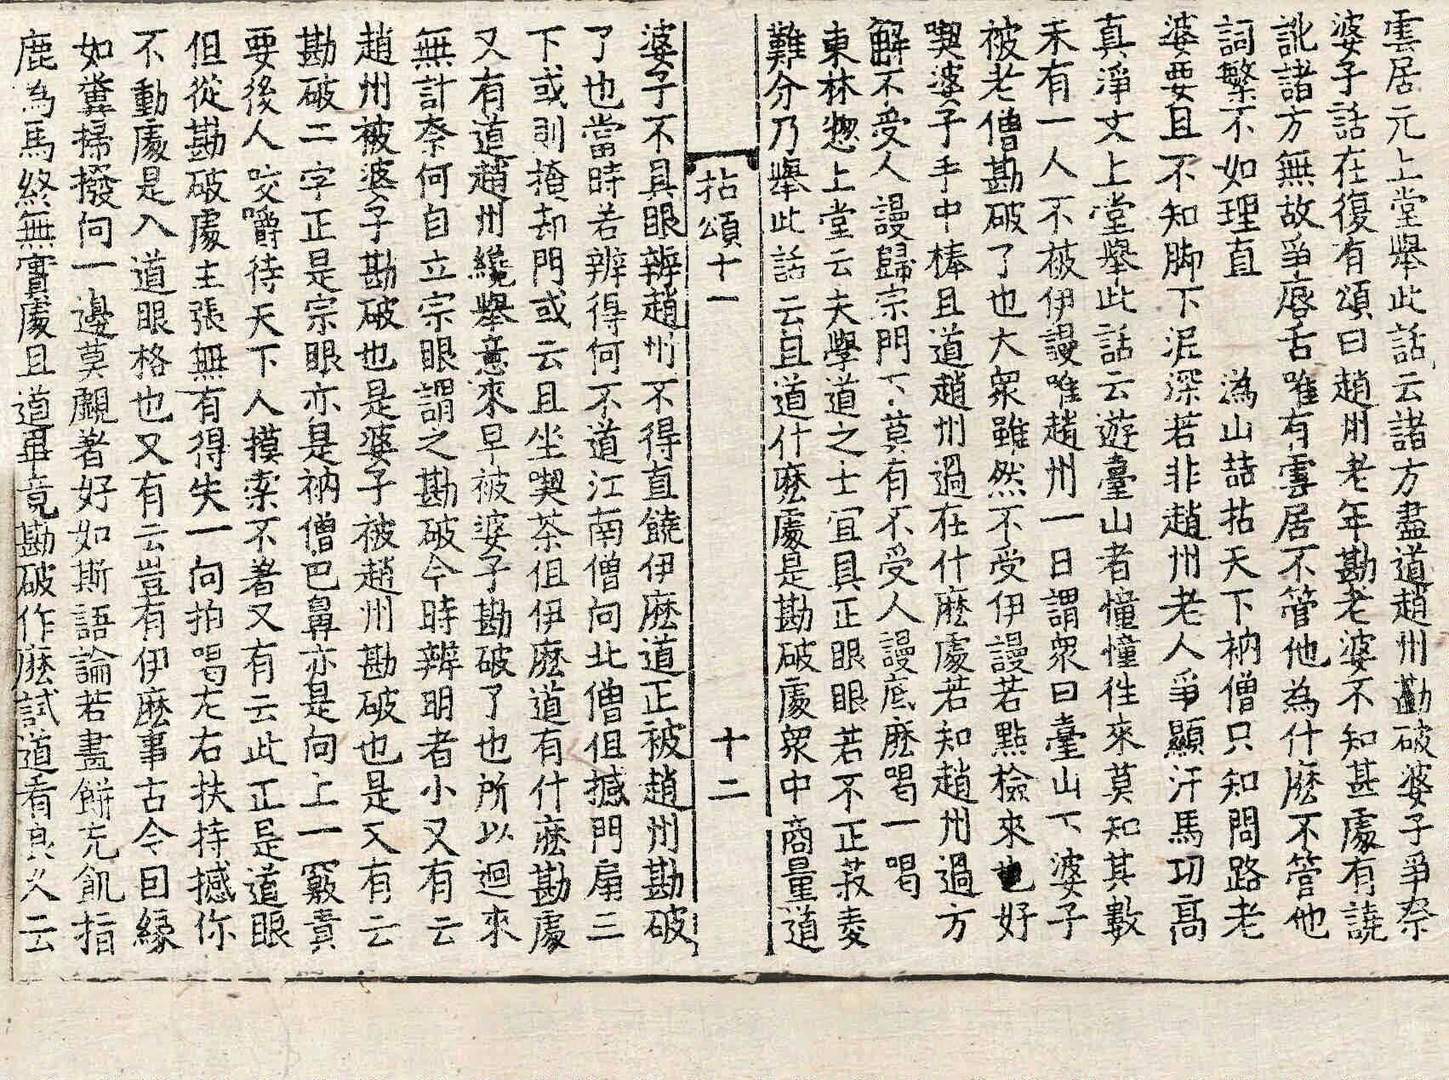 雲居元上堂舉此話云諸方盡道趙州勘破婆子爭奈
婆子話在復有頌曰趙州老年勘老婆不知甚處有譊
訛諸方無故爭唇舌唯有雲居不管他為什麽不管他
詞繁不如理直　潙山喆拈天下衲僧只知問路老
婆要且不知脚下泥深若非趙州老人爭顯汗馬功高
真淨文上堂舉此話云遊臺山者憧憧徃來莫知其數
未有一人不被伊謾唯趙州一日謂衆曰臺山下婆子
被老僧勘破了也大衆雖然不受伊謾若點檢來也好
喫婆子手中棒且道趙州過在什麽處若知趙州過方
解不受人謾歸宗門下莫有不受人謾底麽喝一喝
東林惣上堂云夫學道之士宜具正眼眼若不正菽麦
難分乃舉此話云且道什麽處是勘破處衆中商量道
拈頌十一　十二
婆子不具眼辨趙州不得直饒伊麽道正被趙州勘破
了也當時若辨得何不道江南僧向北僧但撼門扇三
下或則掩却門或云且坐喫茶但伊麽道有什麽勘處
又有道趙州纔舉意來早被婆子勘破了也所以迴來
無計奈何自立宗眼謂之勘破今時辨明者小又有云
趙州被婆子勘破也是婆子被趙州勘破也是又有云
勘破二字正是宗眼亦是衲僧巴鼻亦是向上一竅責
要後人咬嚼待天下人摸𢱢不著又有云此正是道眼
但從勘破處主張無有得失一向拍喝左右扶持撼你
不動處是入道眼格也又有云豈有伊麽事古今因緣
如糞掃撥向一邊莫覰著好如斯語論若畫餠充飢指
鹿為馬終無實處且道畢竟勘破作麽試道看良久云